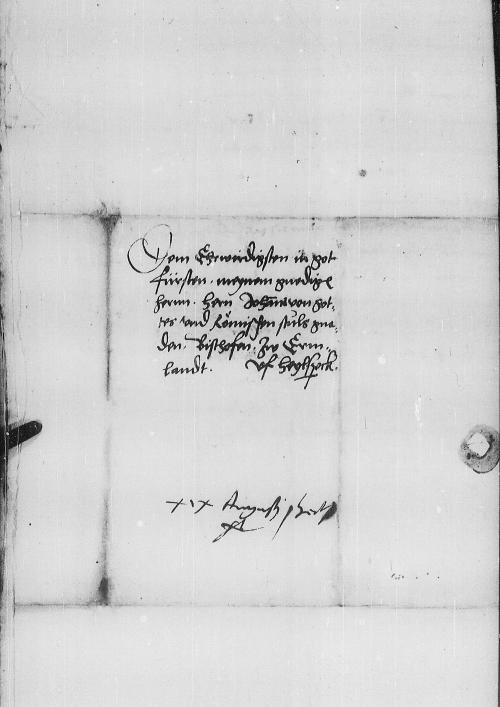 Dem Erwirdigsten in got
fürsten. meynem gnedigen
hernn. hern Johann von got-
tes vnd Römischen stuls gna-
den. Bisschofen. zw Erm-
landt. vf heylsperck.
xix Augusti